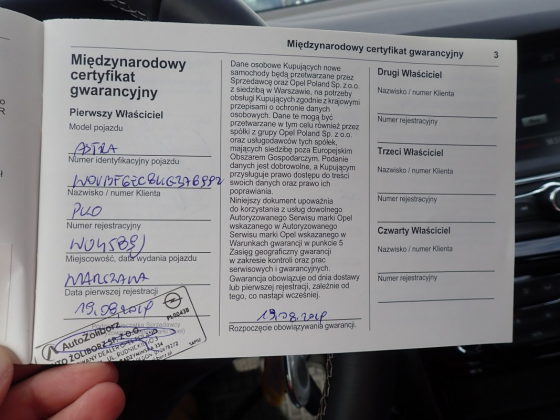 Międzynarodowy certyfikat gwarancyjny 3
Międzynarodowy
certyfikat
gwarancyjny
Pierwszy Właściciel
Model pojazdu
ASTRA
Numer identyfikacyjny pojazdu
Nazwisko / numer Klienta
PKO
Numer rejestracyjny
Miejscowość, data wydania pojazdu
WARSZAWA
Data pierwszej rejestracji
19.08.2014
AutoŻoliborz
Dane osobowe Kupujących nowe
samochody będą przetwarzane przez
Sprzedawcę oraz Opel Poland Sp. z o.o.
z siedzibą w Warszawie, na potrzeby
obsługi Kupujących zgodnie z krajowymi
przepisami o ochronie danych
osobowych. Dane te mogą być
przetwarzane w tym celu również przez
spółki z grupy Opel Poland Sp. z o.o.
oraz usługodawców tych spółek,
mających siedzibę poza Europejskim
Obszarem Gospodarczym. Podanie
danych jest dobrowolne, a Kupującym
przysługuje prawo dostępu do treści
swoich danych oraz prawo ich
poprawiania.
Niniejszy dokument upoważnia
do korzystania z usług dowolnego
Autoryzowanego Serwisu marki Opel
wskazanego w Autoryzowanego
Serwisu marki Opel wskazanego w
Warunkach gwarancji w punkcie 5
Zasięg geograficzny gwarancji
w zakresie kontroli oraz prac
serwisowych i gwarancyjnych.
Gwarancja obowiązuje od dnia dostawy
lub pierwszej rejestracji, zależnie od
tego, co nastąpi wcześniej.
19.08.2014
Rozpoczęcie obowiązywania gwarancji.
Drugi Właściciel
Nazwisko / numer Klienta
Numer rejestracyjny
Trzeci Właściciel
Nazwisko / numer Klienta
Numer rejestracyjny
Czwarty Właściciel
Nazwisko / numer Klienta
Numer rejestracyjny